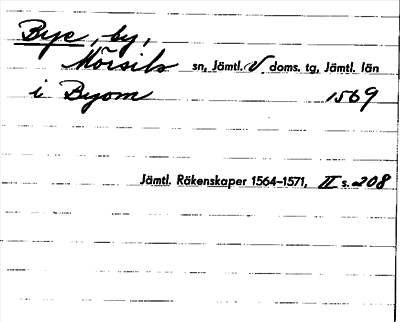 Bye, by,
Mörsils sn, Jämtl. V doms. tg, Jämtl. län
i Byom 1569
Jämtl. Räkenskaper 1564–1571, II s. 208